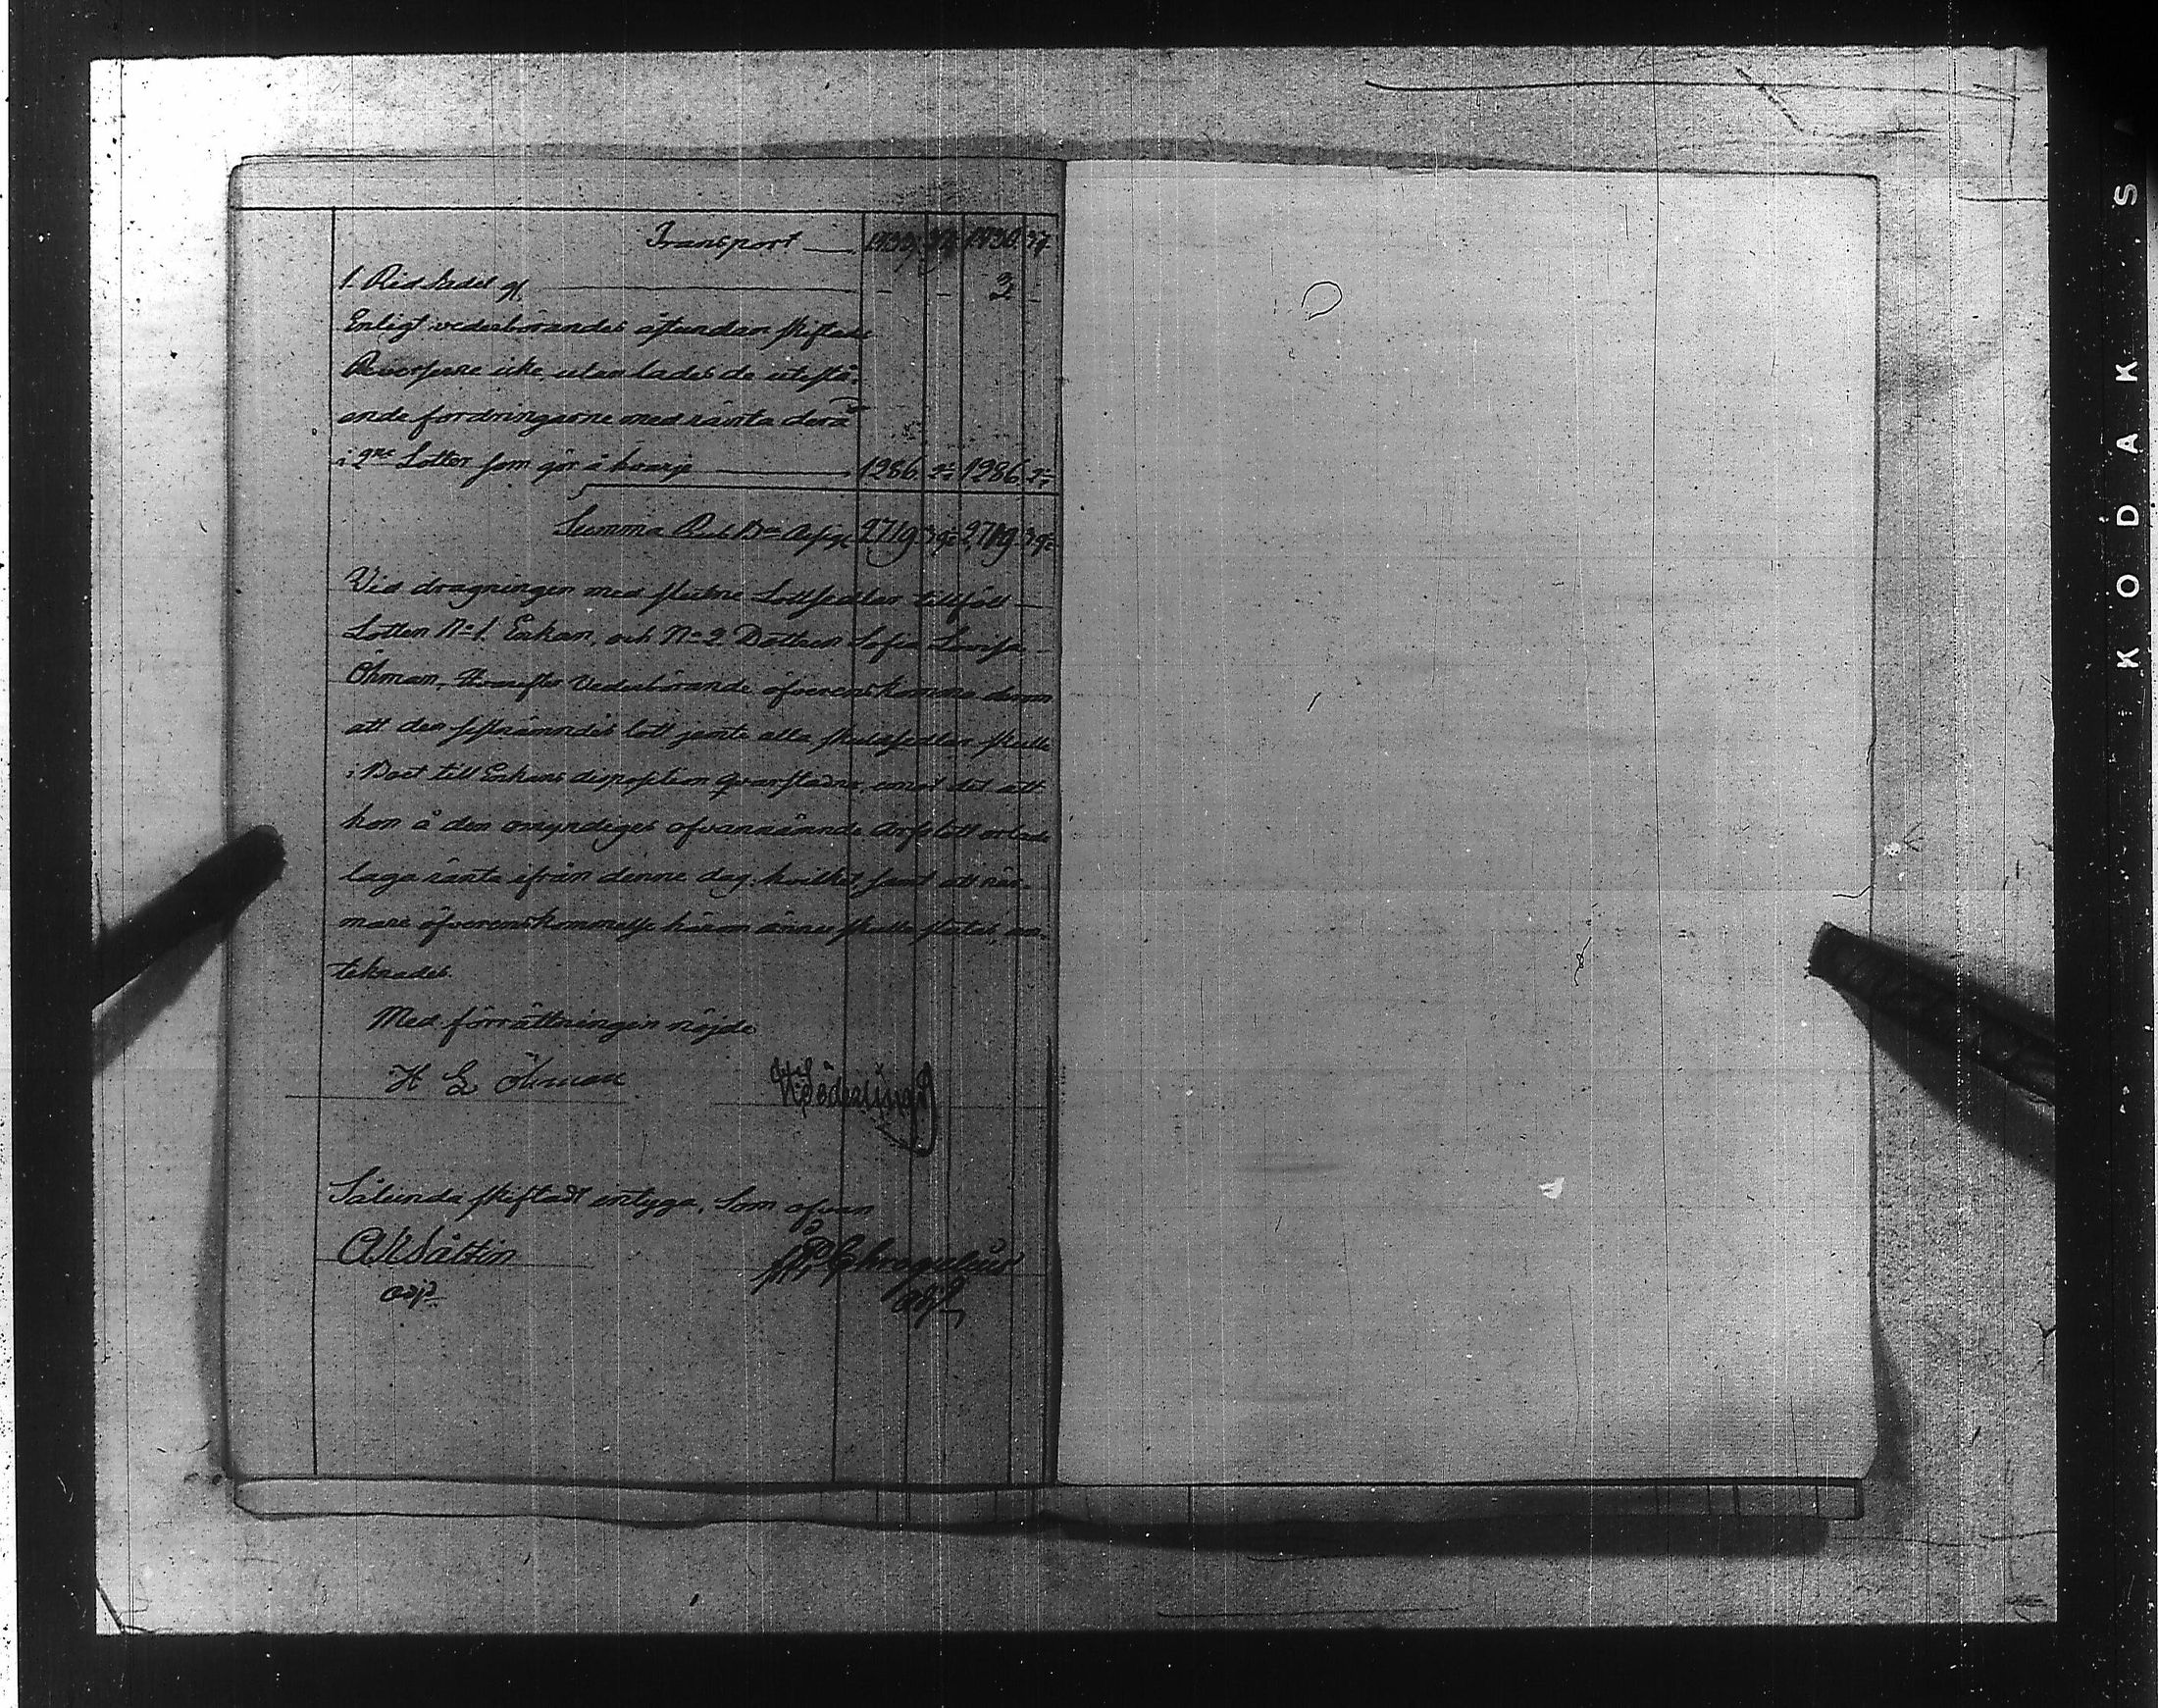 Transport
1 Ridsadel g.l. 3
Enligt vederbörandes åstundan skiftades
Reverserne icke, utan lades de utestå-
ende fordringarne med ränta derå
i 2ne Lotter som gör å hvarje 1286. 2. 1286. 2.
Summa Rub. B:co Assign. 2719 2719
Vid dragningen med slutne Lottsedlar tillföll
Lotten No 1. Enkan, och No 2 Dottren Sofia Lovisa
Öhman, Hvarefter Vederbörande öfverenskommo derom
att den sistnämndes lott jemte alla skuldsedlar skulle
i Boet till Enkans disposition qvarstadna, emot det att
hon å den omyndiges ofvannämnde Arfslott erlade
laga ränta ifrån denne dag; hvilket, samt att när-
mare öfverenskommelse härom ännu skulle slutas, an-
teknades.
Med förrättningen nöjde
H L Öhman Söderling
Sålunda skiftadt intyga, Som ofvan